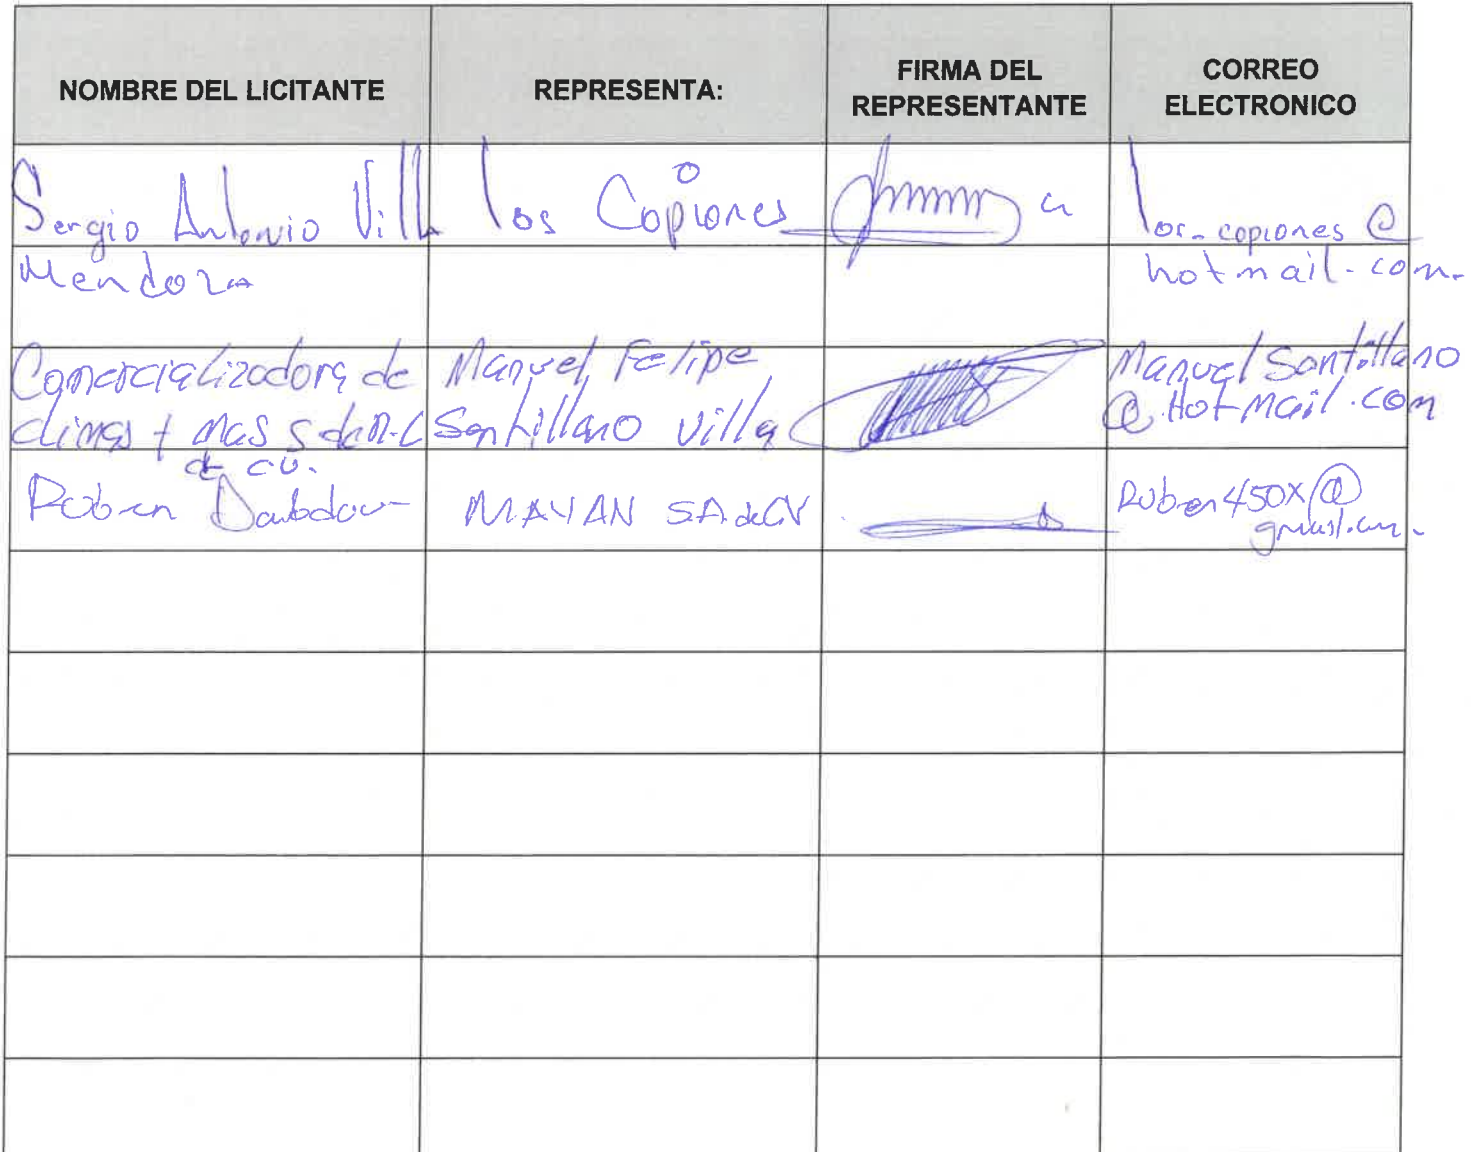 NOMBRE DEL LICITANTE
REPRESENTA:
FIRMA DEL
REPRESENTANTE
CORREO
ELECTRONICO
Sergio Antonio Villa
Mendoza
los Copiones
los-copiones@
hotmail.com.
Comercializadora de
climas + mas S de R.L
de C.V.
Manuel Felipe
Santillano Villa
ManuelSantillano
@Hotmail.com
Ruben
MAYAN SA de CV
Ruben450X@
gmail.com.